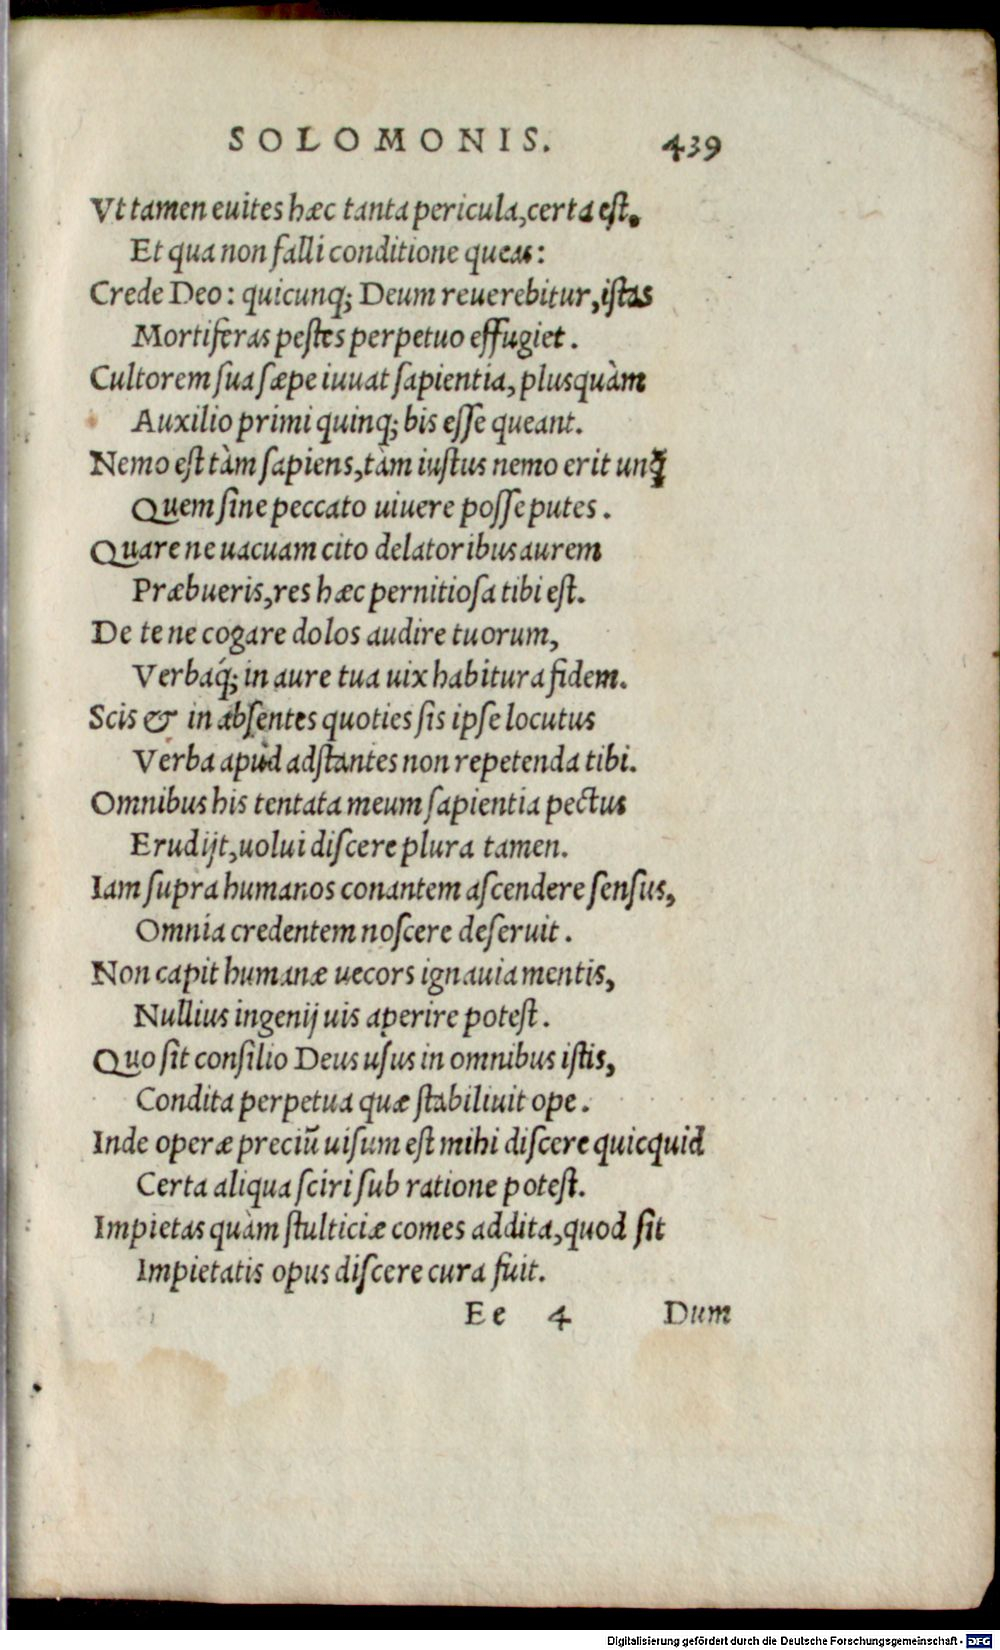 SOLOMONIS. 439
Vt tamen euites hæc tanta pericula, certa est.
Et qua non falli conditione queas:
Crede Deo: quicunq; Deum reuerebitur, istas
Mortiferas pestes perpetuo effugiet.
Cultorem sua sæpe iuuat sapientia, plusquàm
Auxilio primi quinq; bis esse queant.
Nemo est tàm sapiens, tàm iustus nemo erit unꝗ̃
Quem sine peccato uiuere posse putes.
Quare ne uacuam cito delatoribus aurem
Præbueris, res hæc pernitiosa tibi est.
De te ne cogare dolos audire tuorum,
Verbaq́; in aure tua uix habitura fidem.
Scis & in absentes quoties sis ipse locutus
Verba apud adstantes non repetenda tibi.
Omnibus his tentata meum sapientia pectus
Erudijt, uolui discere plura tamen.
Iam supra humanos conantem ascendere sensus,
Omnia credentem noscere deseruit.
Non capit humanæ uecors ignauia mentis,
Nullius ingenij uis aperire potest.
Quo sit consilio Deus usus in omnibus istis,
Condita perpetua quæ stabiliuit ope.
Inde operæ preciũ uisum est mihi discere quicquid
Certa aliqua sciri sub ratione potest.
Impietas quàm stulticiæ comes addita, quod sit
Impietatis opus discere cura fuit.
Ee 4 Dum
Digitalisierung gefördert durch die Deutsche Forschungsgemeinschaft - DFG